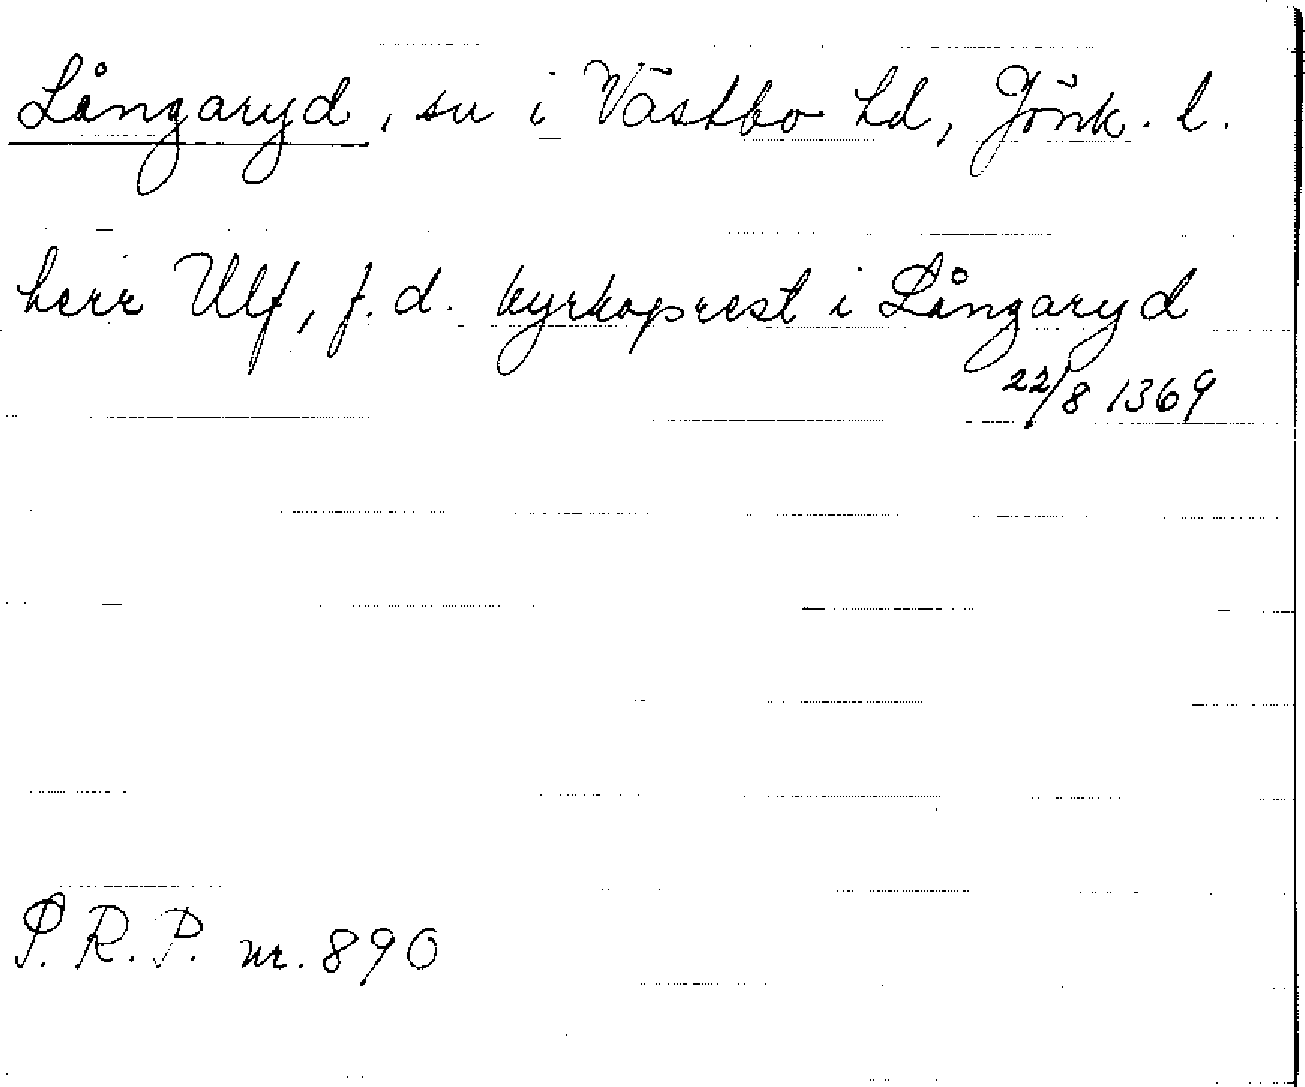 Långaryd, sn i Västbo hd, Jönk. l.
herr Ulf, f. d. kyrkoprest i Långaryd
22/8 1369
P. R. P. nr. 890